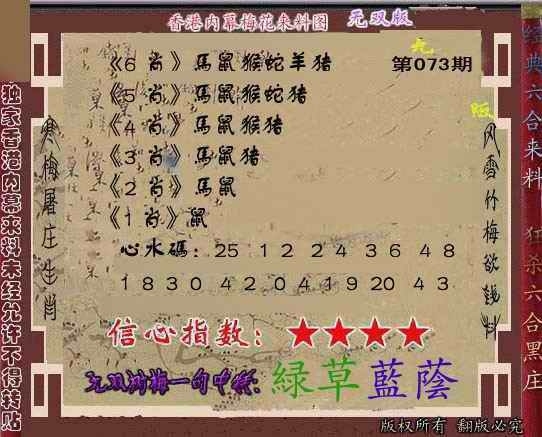 香港内幕梅花来料图 无双版
《6 肖》馬鼠猴蛇羊猪 第073期
《5 肖》馬鼠猴蛇猪
《4 肖》馬鼠猴猪
《3 肖》馬鼠猪
《2 肖》馬鼠
《1 肖》鼠
心水碼: 25 12 24 36 48
18 30 42 04 19 20 43
信心指数: ★★★★
无双浏梅一句中特: 緑草藍蔭
版权所有 翻版必究
独家香港内幕来料未经允许不得转贴
寒梅居庄生肖
风雪竹梅欲錢料
经典六合来料 狂杀六合黑庄